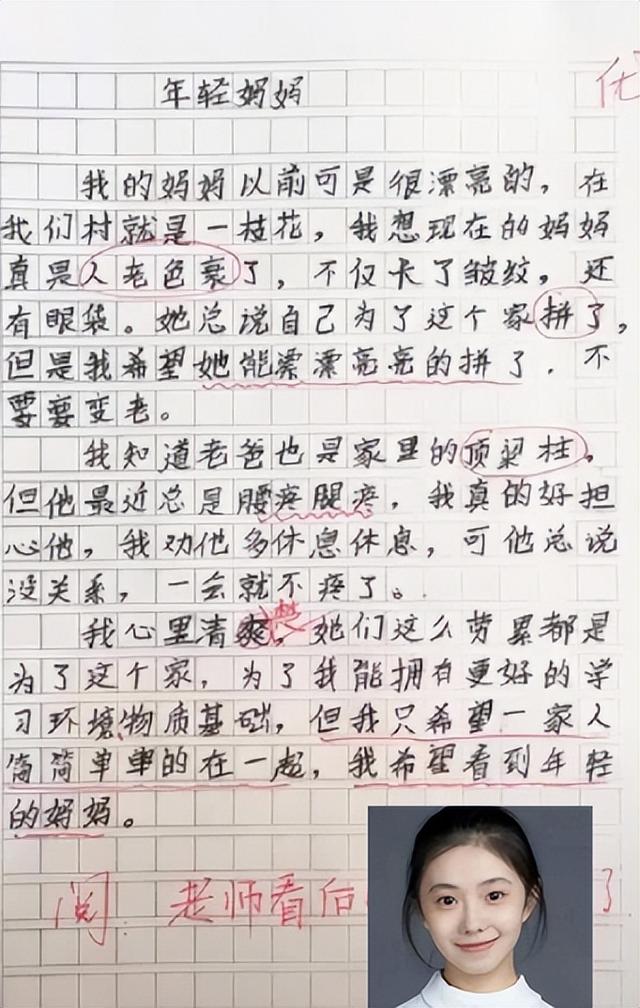 年轻妈妈
优
我的妈妈以前可是很漂亮的，在
我们村就是一枝花，我想现在的妈妈
真是人老色衰了，不仅长了皱纹，还
有眼袋。她总说自己为了这个家拼了，
但是我希望她能漂漂亮亮的拼了．不
要要变老。
我知道老爸也是家里的顶梁柱。
但他最近总是腰疼腿疼，我真的好担
心他，我劝他多休息休息，可他总说
没关系，一会就不疼了。
我心里清爽，她们这么劳累都是
楚
为了这个家，为了我能拥有更好的学
习环境，物质基础，但我只希望一家人
简简单单的在一起，我希望看到年轻
的妈妈。
阅：老师看后 了